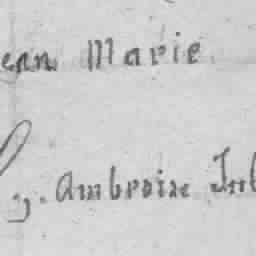 ean Marie
y. Ambroise Jul